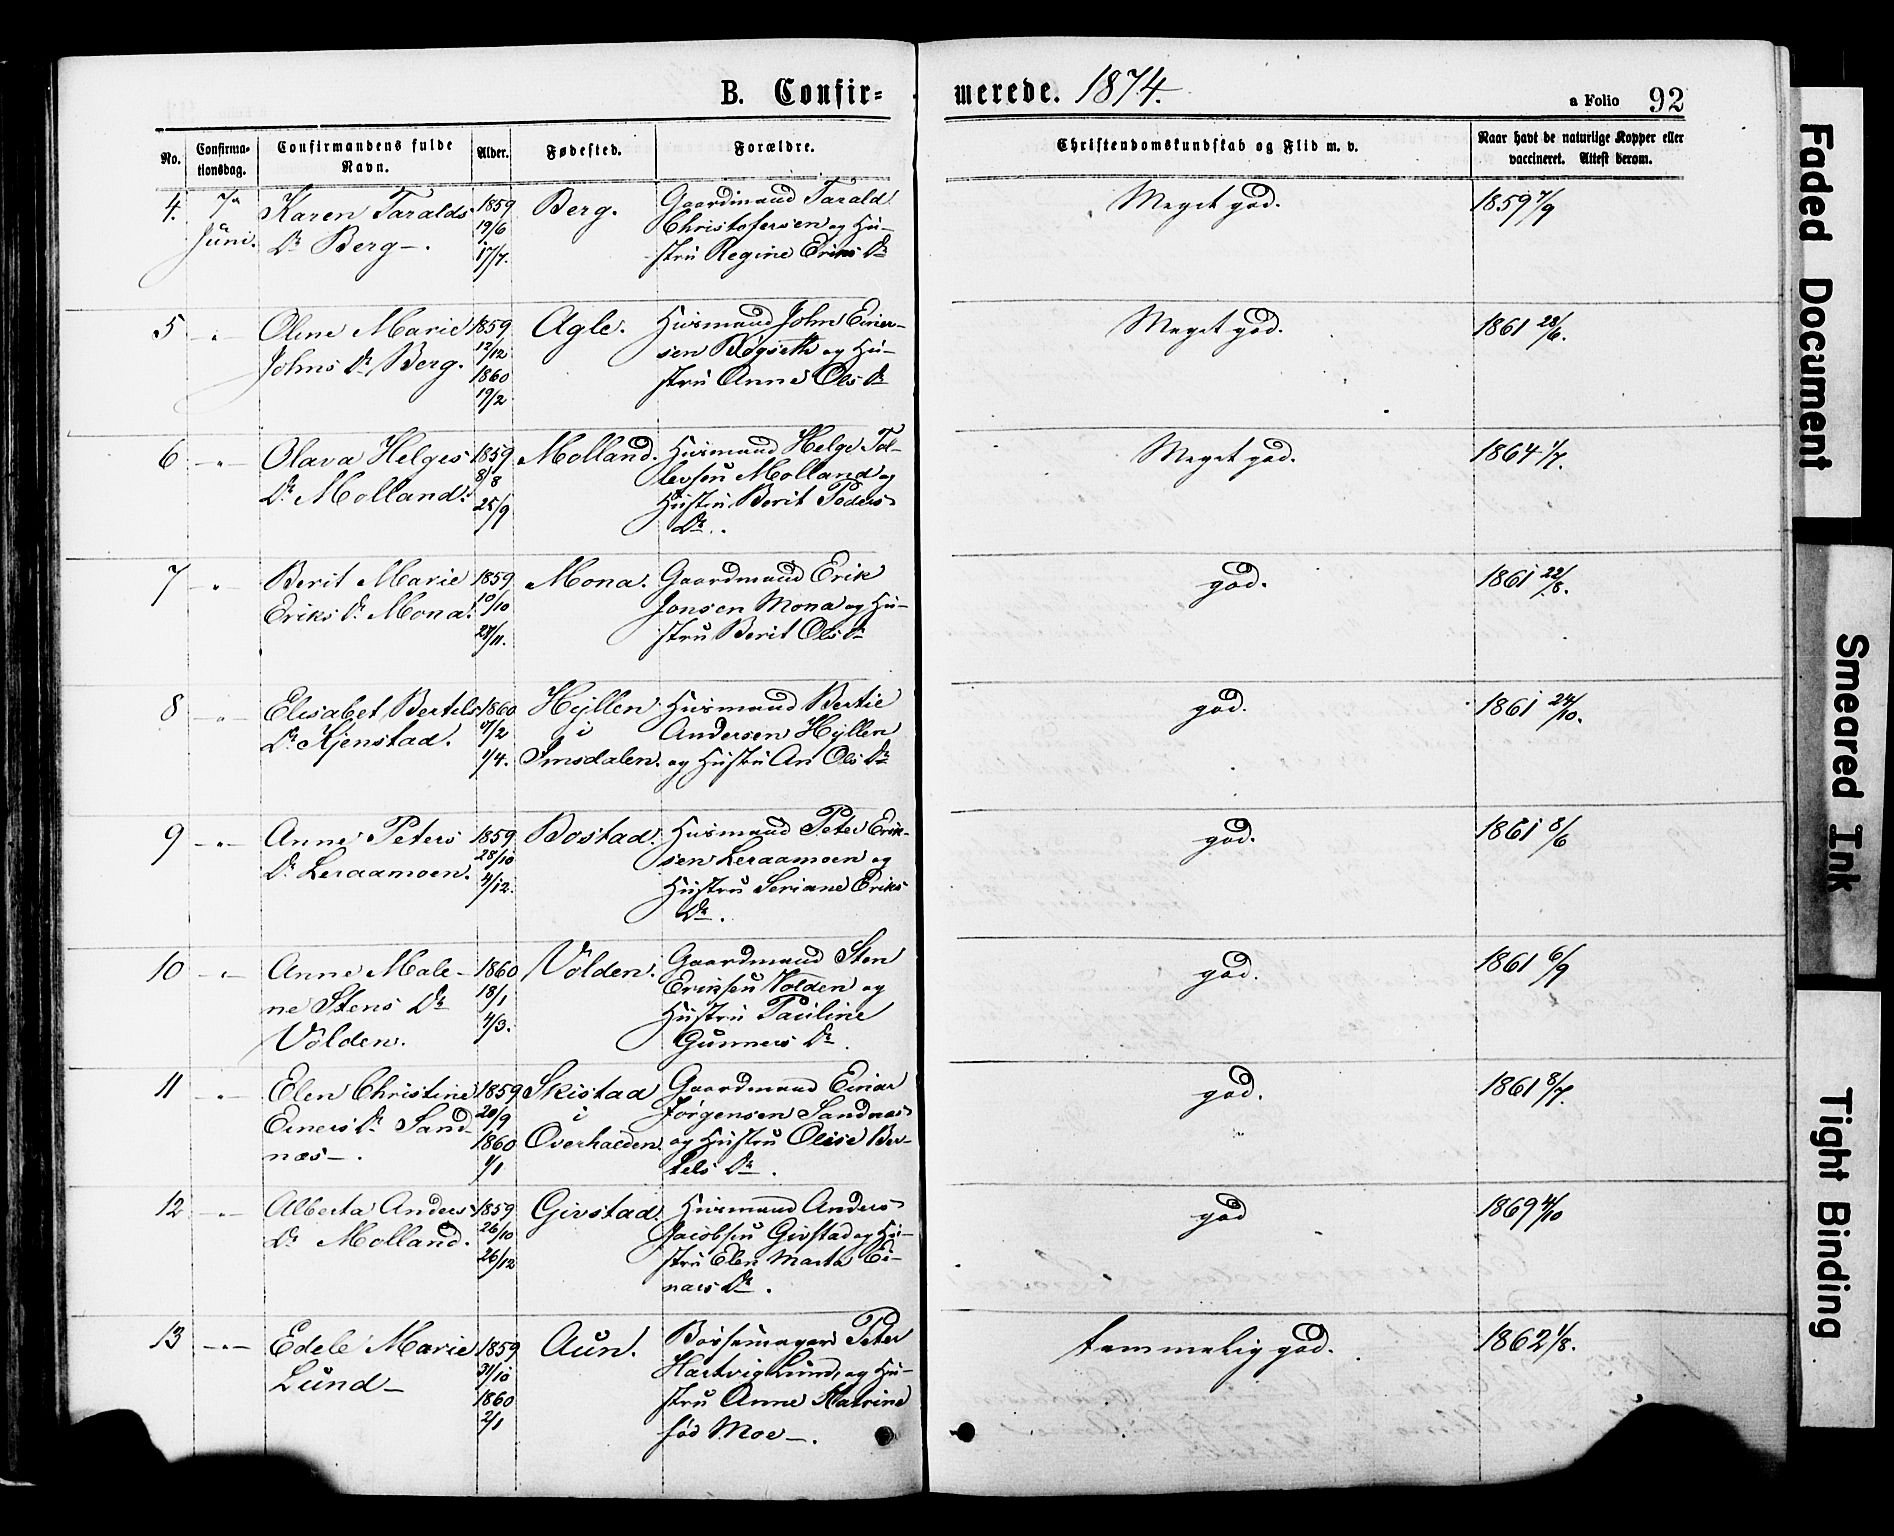 B. Confir-
merede. 1874.
a Folio 92
No.
Confirma-
tionsdag.
Confirmandens fulde
Navn.
Alder.
Fødested.
Forældre.
Christendomskundskab og Flid m. v.
Naar havt de naturlige Kopper eller
vaccineret. Attest derom.
4. 7de Juni. Karen Taralds
Dr Berg-.
1859
19/6
17/7.
Berg.
Gaardmand Tarald
Christofersen og Hu-
stru Regine Eriks Dr
Meget god.
1859 7/9
5 " Oline Marie
Johns Dr Berg.
1859
12/12
1860
19/2
Agle.
Husmand John Einer-
sen Bøgseth og Hu-
stru Anne Ols Dr
Meget god.
1861 28/6.
6 -"- Olava Helges
Dr Molland.
1859
8/8
25/9
Molland.
Husmand Helge Tol-
levsen Molland og
Hustru Berit Peders
Dr.
Meget god.
1864 1/7.
7 -"- Berit Marie
Eriks Dr Mona.
1859
10/10
27/11.
Mona.
Gaardmand Erik
Jonsen Mona og Hu-
stru Berit Ols Dr
god.
1861 22/8.
8 " Elisabet Bertils
Dr Kjenstad.
1860
/2
1/4.
Hyllen
i
Imsdalen.
Husmand Bertil
Andersen Hyllen
og Hustru An Ols Dr
god.
1861 24/10.
9 -"- Anne Peters
Dr Leraamoen.
1859
28/10
4/12.
Bostad.
Husmand Peter Erik-
sen Leraamoen og
Hustru Seriane Eriks
Dr.
god.
1861 8/6
10 -"- Anne Male-
ne Stens Dr
Volden.
1860
18/1
4/3.
Volden.
Gaardmand Sten
Eriksen Volden og
Hustru Pauline
Gunners Dr.
god.
1861 6/9
11 -"- Elen Christine
Einers Dr Sand-
næs-.
1859
20/9
1860
1/1
Skistad
i
Overhalden.
Gaardmand Einar
Jørgensen Sandnæs
og Hustru Olise Ber-
tels Dr.
god.
1861 8/7.
12 -"- Alberta Anders
Dr Molland.
1859
26/10
26/12
Givstad.
Husmand Anders
Jacobsen Givstad og Hu-
stru Elen Marta Ei-
nars Dr.
god
1869 4/10
13 -"- Edele Marie
Lund-
1859
31/10
1860
2/1
Aun.
Bøssemager Peter
Hartvig Lund, og Hu-
stru Anne Katrine
fød Moe-.
temmelig god.
1862 1/8.
Faded Document
Smeared Ink
Tight Binding